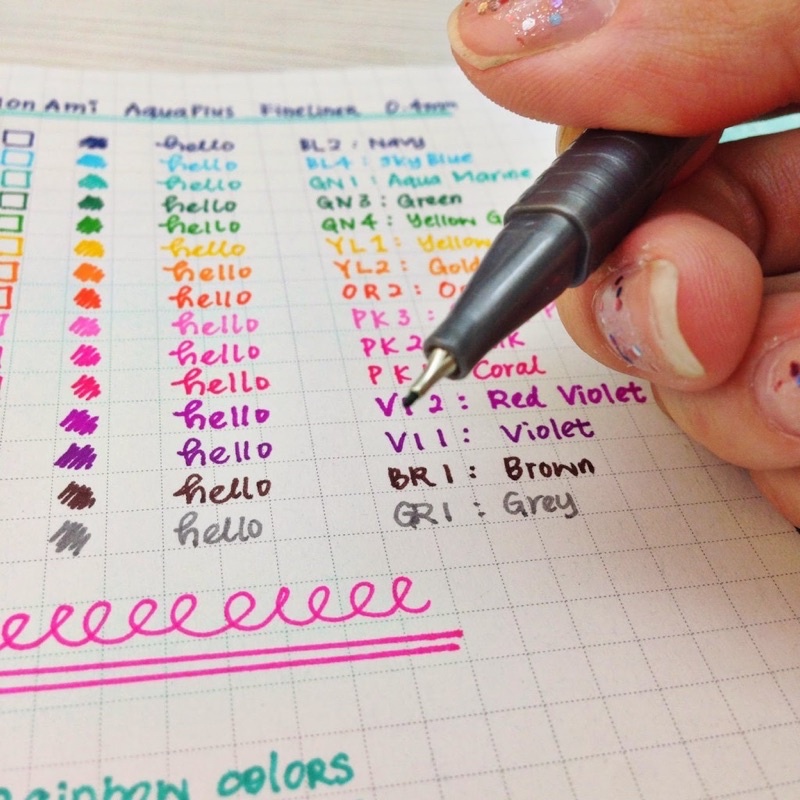 Ami AquaPlus Fineliner 0.4mm
hello BL2 : Navy
hello BL4 : Sky Blue
hello GN1 : Aqua Marine
hello GN3 : Green
hello GN4 : Yellow
hello YL1 : Yellow
hello YL2 : Gold
hello OR2 :
hello PK3 :
hello PK2
hello Coral
hello VI2 : Red Violet
hello VI1 : Violet
hello BR1 : Brown
hello GR1 : Grey
rainbow colors